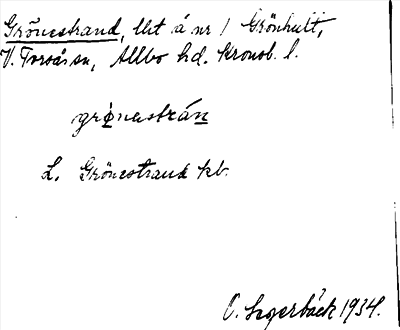 Grönestrand, lht å nr 1 Grönhult,
V. Torsås sn, Allbo hd. Kronob. l.
grö̀nastrán
L. Grönestrand kb.
O. Segerbäck 1934.